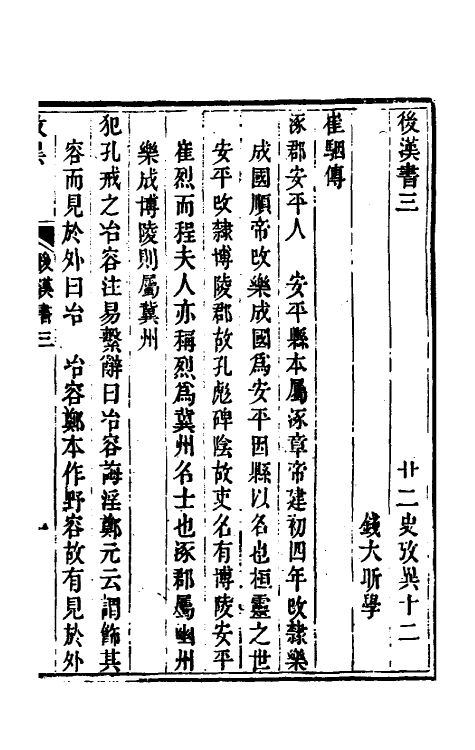 後漢書三 廿二史攷異十二
錢大昕學
崔駰傳
涿郡安平人 安平縣本屬涿章帝建初四年改隸樂
成國順帝改樂成國爲安平因縣以名也桓靈之世
安平改隸博陵郡故孔彪碑陰故吏名有博陵安平
崔烈而程夫人亦稱烈爲冀州名士也涿郡屬幽州
樂成博陵則屬冀州
犯孔戒之冶容注易繫辭曰冶容誨淫鄭元云謂飾其
容而見於外曰冶 冶容鄭本作野容故有見於外
後漢書三 一